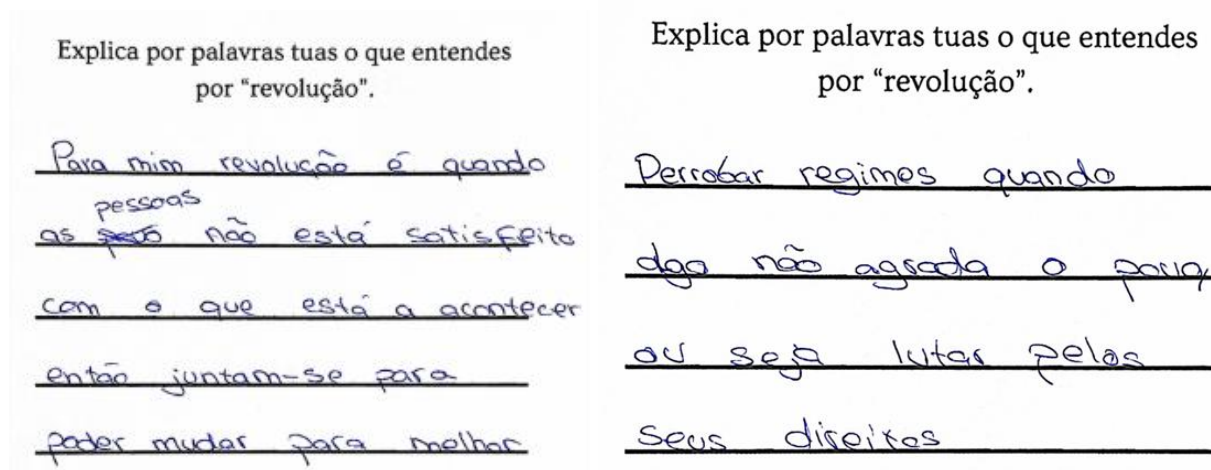 Explica por palavras tuas o que entendes
por “revolução”.
Para mim revolução é quando
pessoas
as não está satisfeito
com o que está a acontecer
então juntam-se para
poder mudar para melhor
Explica por palavras tuas o que entendes
por “revolução”.
Derrobar regimes quando
algo não agrada o povo,
ou seja lutar pelos
seus direitos